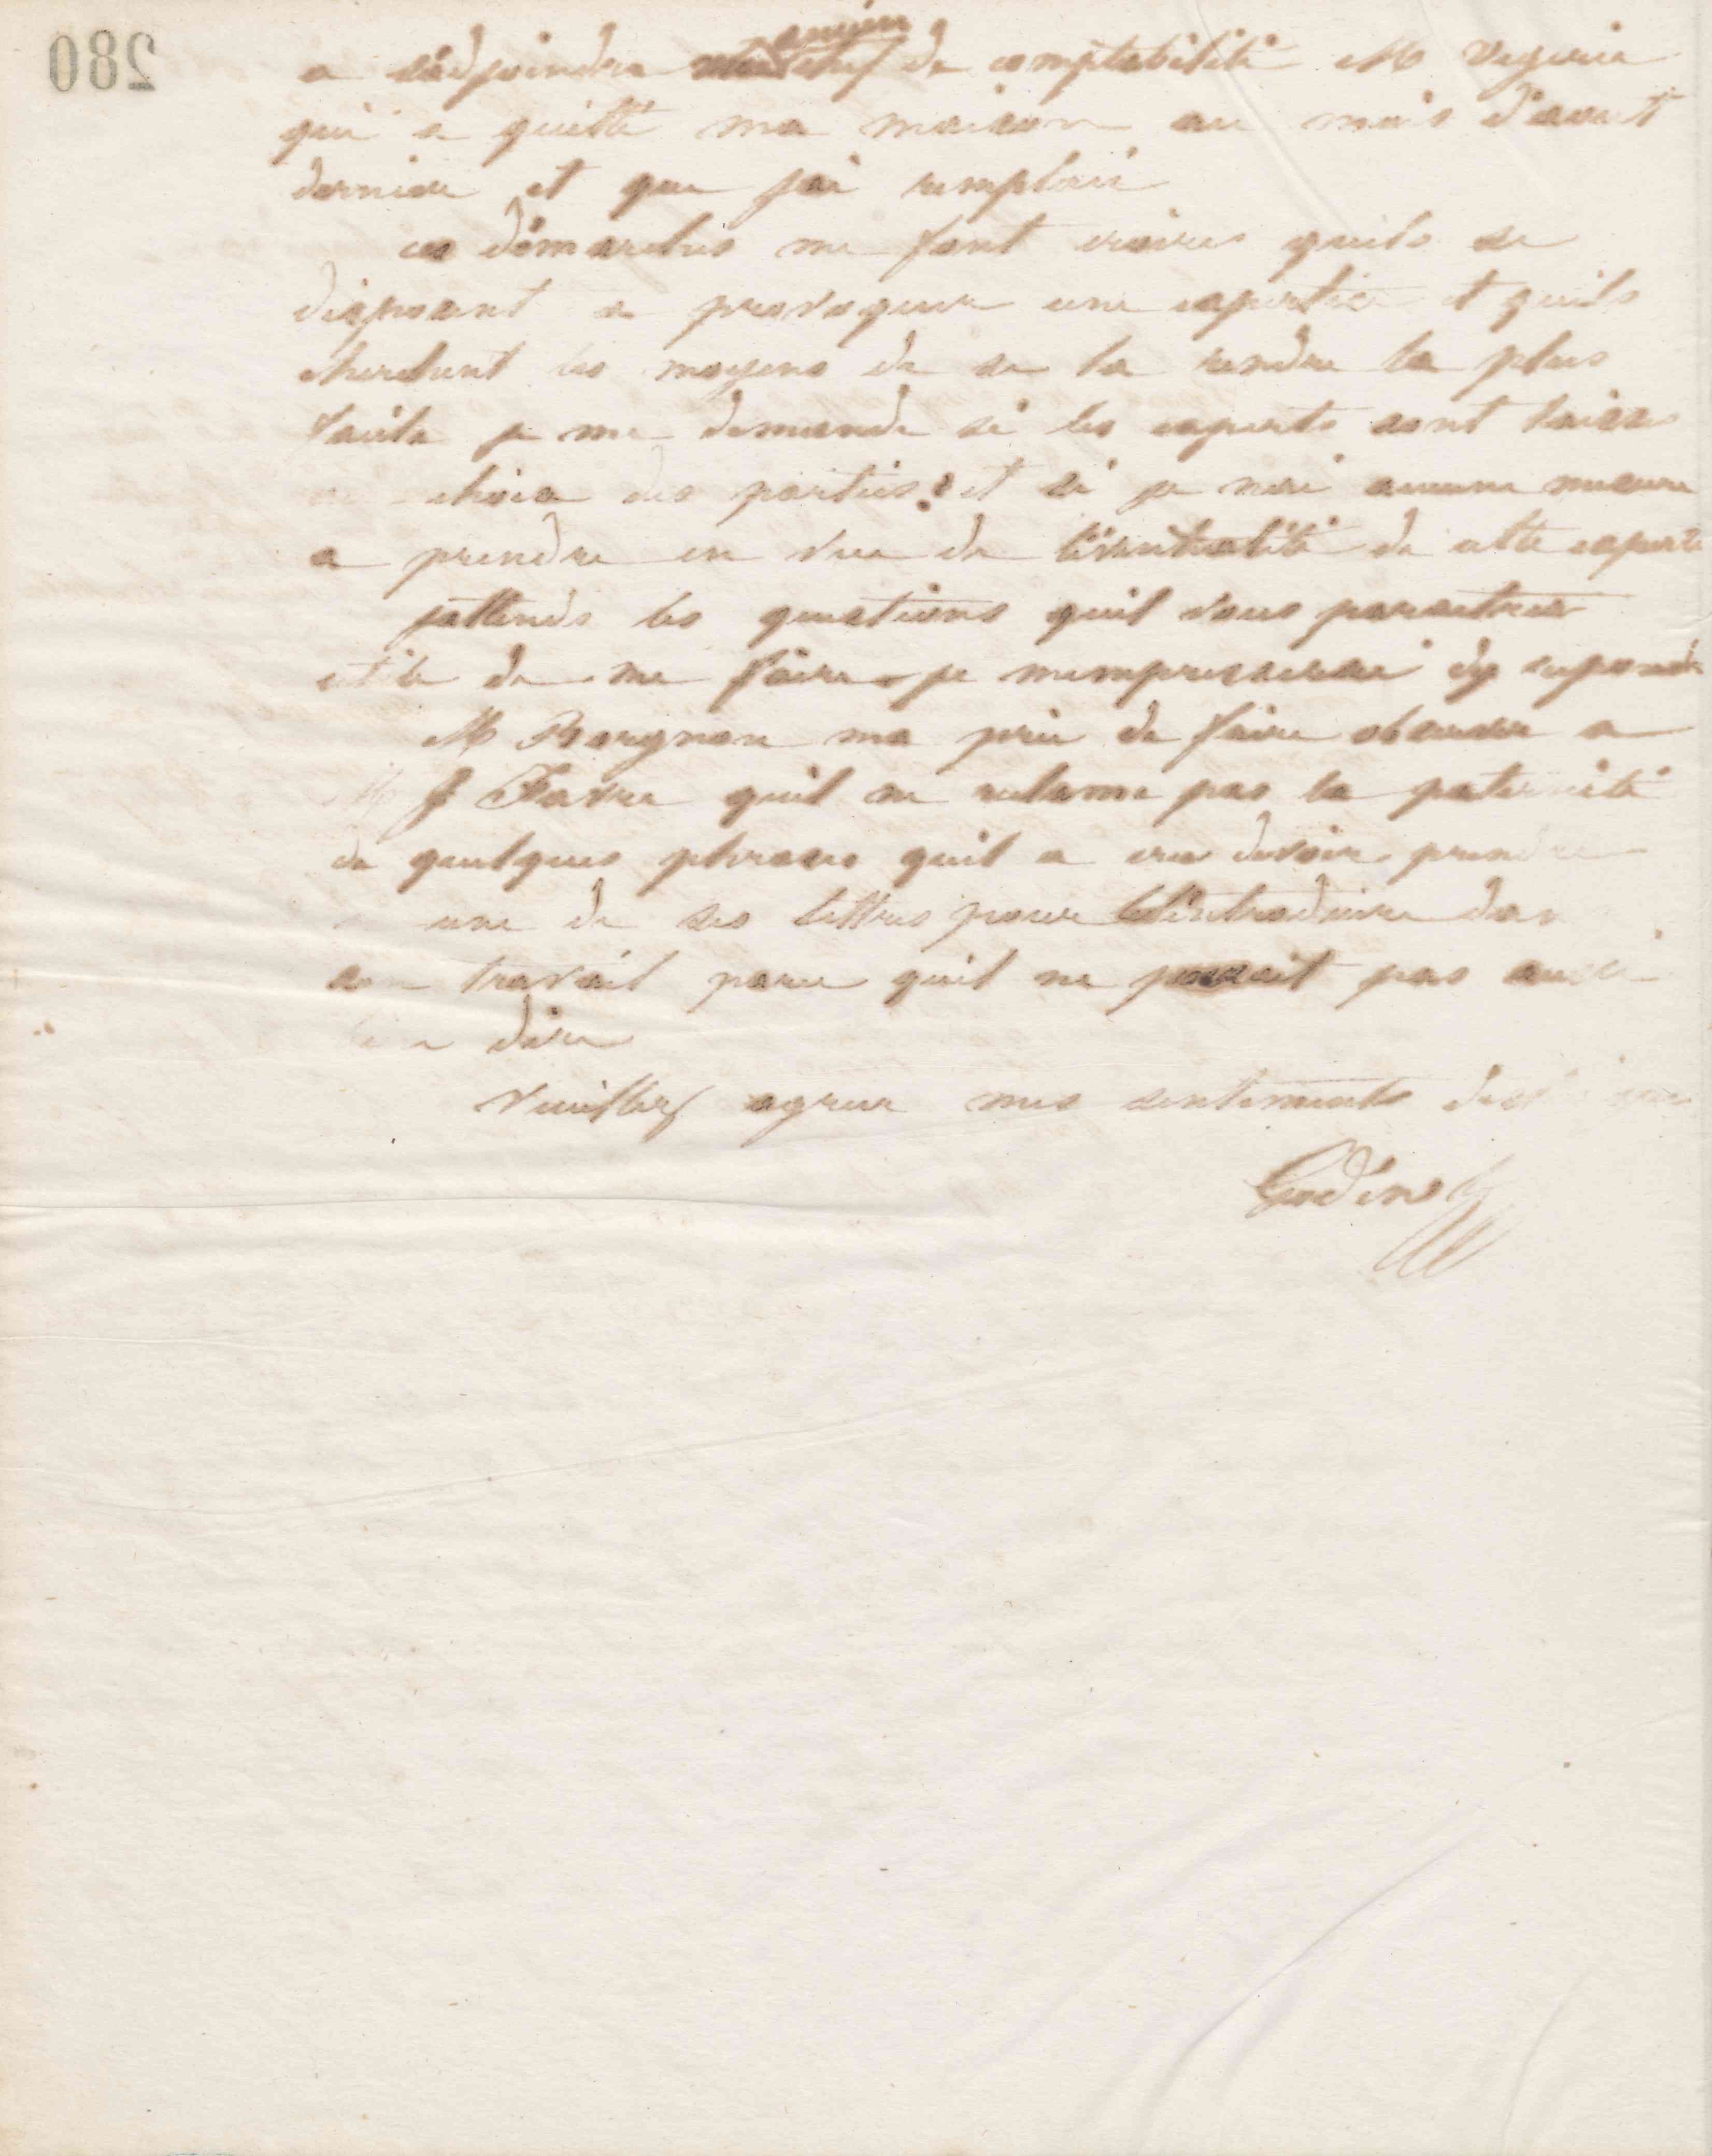 280
a s'adjoindre ancien
chef de comptabilité M
qui a quitté ma maison au mois d'aout
dernier et que j'ai remplacé
ces démarches me font croire quils se
disposent a provoquer une expertise et quils
cherchent les moyens de se la rendre la plus
facile je me demande si les experts sont laissés
choix des parties et si je n'ai aucune mesure
a prendre en vue de l'éventualité de cette
jattends les questions quil vous paraitra
utile de me faire je mempresserai dy repondre
M ma prié de faire observer a
M J Favre quil ne reclame pas la paternité
de quelques phrases quil a cru devoir prendre
une de ses lettres pour introduire dans
son travail parce quil ne pouvait pas aussi
dire
Veuillez agreer mes sentiments
Godin